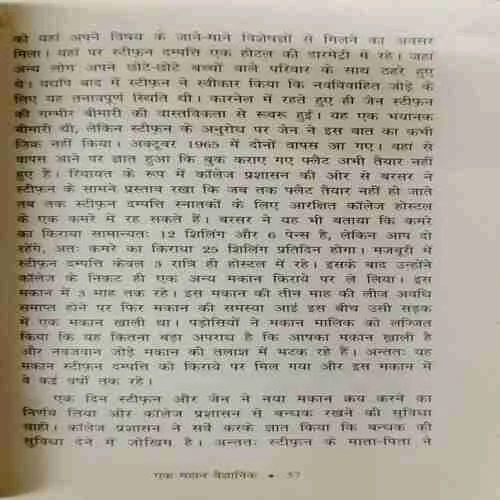 को यहां अपने विषय के जाने-माने विशेषज्ञों से मिलने का अवसर
मिला। यहां पर स्टीफ़न दम्पत्ति एक होटल की डारमेटी में रहे। जहां
अन्य लोग अपने छोटे-छोटे बच्चों वाले परिवार के साथ ठहरे हुए
थे। यद्यपि बाद में स्टीफ़न ने स्वीकार किया कि नवविवाहित जोड़े के
लिए यह तनावपूर्ण स्थिति थी। कारनेल में रहते हुए ही जेन स्टीफ़न
की गम्भीर बीमारी की वास्तविकता से रूबरू हुई। यह एक भयानक
बीमारी थी, लेकिन स्टीफ़न के अनुरोध पर जेन ने इस बात का कभी
जिक्र नहीं किया। अक्टूबर 1965 में दोनों वापस आ गए। यहां से
वापस आने पर ज्ञात हुआ कि बुक कराए गए फ्लैट अभी तैयार नहीं
हुए है। रियायत के रूप में कॉलेज प्रशासन की ओर से बरसर ने
स्टीफ़न के सामने प्रस्ताव रखा कि जब तक फ्लैट तैयार नहीं हो जाते
तब तक स्टीफ़न दम्पत्ति स्नातकों के लिए आरक्षित कॉलेज होस्टल
के एक कमरे में रह सकते हैं। बरसर ने यह भी बताया कि कमरे
का किराया सामान्यतः 12 शिलिंग और 6 पेन्स है, लेकिन आप दो
रहेंगे, अतः कमरे का किराया 25 शिलिंग प्रतिदिन होगा। मजबूरी में
स्टीफ़न दम्पत्ति केवल 3 रात्रि ही होस्टल में रहे। इसके बाद उन्होंने
कॉलेज के निकट ही एक अन्य मकान किराये पर ले लिया। इस
मकान में 3 माह तक रहे। इस मकान की तीन माह की लीज अवधि
समाप्त होने पर फिर मकान की समस्या आई इस बीच उसी सड़क
में एक मकान खाली था। पड़ोसियों ने मकान मालिक को लज्जित
किया कि यह कितना बड़ा अपराध है कि आपका मकान खाली है
और नवजवान जोड़े मकान की तलाश में भटक रहे हैं। अन्ततः यह
मकान स्टीफ़न दम्पत्ति को किराये पर मिल गया और इस मकान में
वे कई वर्षों तक रहे।
एक दिन स्टीफ़न और जेन ने नया मकान क्रय करने का
निर्णय लिया और कॉलेज प्रशासन से बन्धक रखने की सुविधा
चाही। कॉलेज प्रशासन ने सर्वे करके ज्ञात किया कि बन्धक की
सुविधा देने में जोखिम है। अन्ततः स्टीफ़न के माता-पिता ने
एक महान वैज्ञानिक • 57